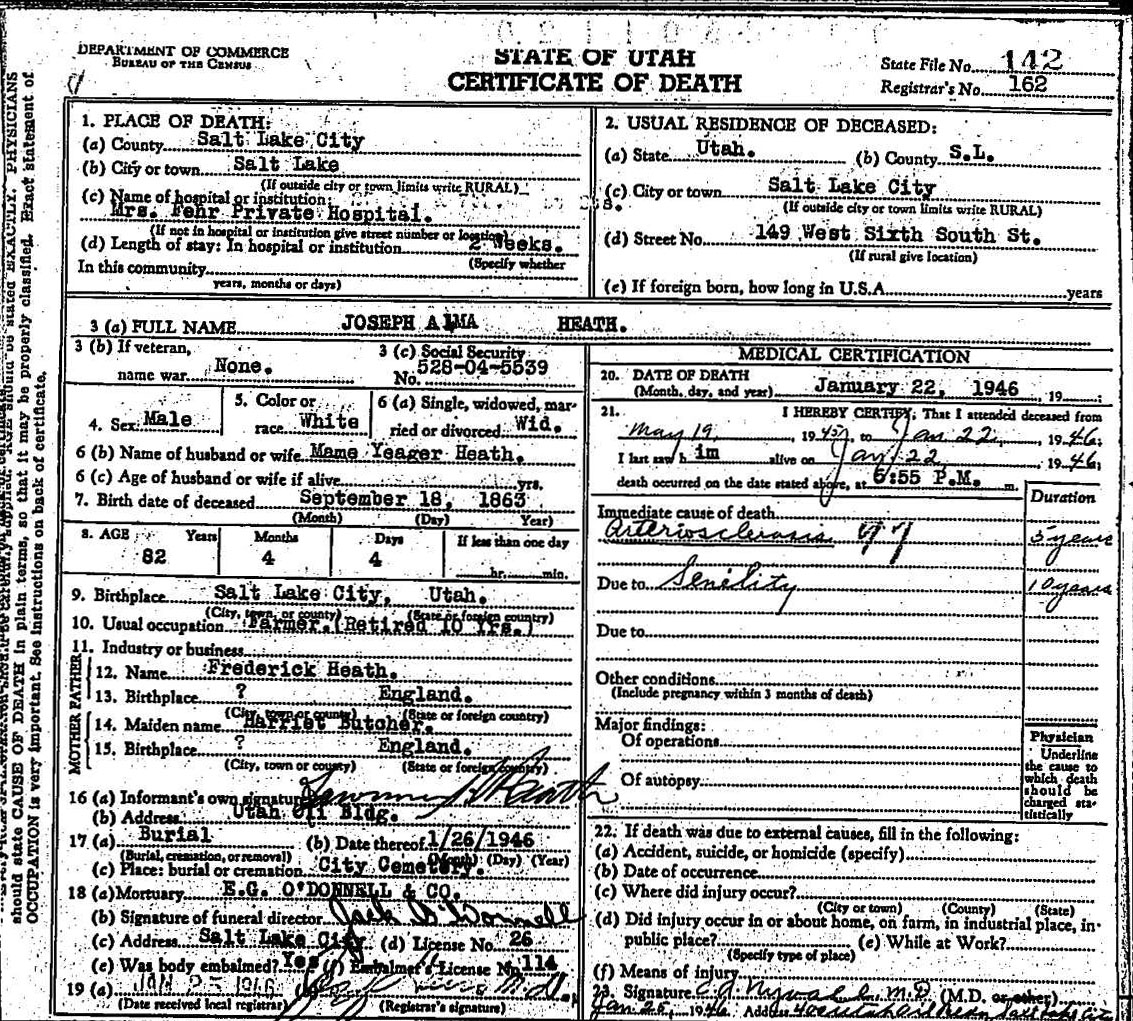 DEPARTMENT OF COMMERCE
BUREAU OF THE CENSUS
STATE OF UTAH
CERTIFICATE OF DEATH
State File No. 142
Registrar's No. 162
1. PLACE OF DEATH:
(a) County Salt Lake City
(b) City or town Salt Lake
(If outside city or town limits write RURAL)
(c) Name of hospital or institution:
Mrs. Fehr Private Hospital.
(If not in hospital or institution give street number or location)
(d) Length of stay: In hospital or institution 2 Weeks.
(Specify whether
In this community
years, months or days)
2. USUAL RESIDENCE OF DECEASED:
(a) State Utah. (b) County S.L.
(c) City or town Salt Lake City
(If outside city or town limits write RURAL)
(d) Street No. 149 West Sixth South St.
(If rural give location)
(e) If foreign born, how long in U.S.A. years
3 (a) FULL NAME JOSEPH ALMA HEATH.
3 (b) If veteran,
name war None.
3 (c) Social Security
No. 528-04-5539
4. Sex Male
5. Color or
race White
6 (a) Single, widowed, mar-
ried or divorced Wid.
6 (b) Name of husband or wife Mame Yeager Heath.
6 (c) Age of husband or wife if alive yrs.
7. Birth date of deceased September 18, 1863
(Month) (Day) Year)
8. AGE Years Months Days If less than one day
82 4 4 hr. min.
9. Birthplace Salt Lake City, Utah.
(City, town, or county) (State or foreign country)
10. Usual occupation Farmer. (Retired 10 Yrs.)
11. Industry or business
FATHER
12. Name Frederick Heath.
13. Birthplace ? England.
(City, town or county) (State or foreign country)
MOTHER
14. Maiden name Harriet Butcher.
15. Birthplace ? England.
(City, town or county) (State or foreign country)
16 (a) Informant's own signature Heath
(b) Address Utah Oil Bldg.
17 (a) Burial (b) Date thereof 1/26/1946
(Burial, cremation, or removal) (Month) (Day) (Year)
(c) Place: burial or cremation City Cemetery.
18 (a) Mortuary E.G. O'DONNELL & CO.
(b) Signature of funeral director Jack O'Donnell
(c) Address Salt Lake City (d) License No. 26
(e) Was body embalmed? Yes (f) Embalmer's License No. 114
19 (a) JAN 25 1946 M.D.
(Date received local registrar) (Registrar's signature)
MEDICAL CERTIFICATION
20. DATE OF DEATH
(Month, day, and year) January 22, 1946, 19
21. I HEREBY CERTIFY, That I attended deceased from
May 19, 1945, to Jan 22, 1946;
I last saw h im alive on Jan 22 1946;
death occurred on the date stated above, at 6:55 P.M. m.
Duration
Immediate cause of death
Arteriosclerosis 97 5 years
Due to Senility 10 years
Due to
Other conditions
(Include pregnancy within 3 months of death)
Major findings:
Of operations
Of autopsy
Physician
Underline
the cause to
which death
should be
charged sta-
tistically
22. If death was due to external causes, fill in the following:
(a) Accident, suicide, or homicide (specify)
(b) Date of occurrence
(c) Where did injury occur?
(City or town) (County) (State)
(d) Did injury occur in or about home, on farm, in industrial place, in-
public place? (e) While at Work?
(Specify type of place)
(f) Means of injury
23. Signature M.D. (M.D. or other)
Jan 25, 1946 Address Salt Lake City
should state CAUSE OF DEATH in plain terms, so that it may be properly classified. Exact statement of
OCCUPATION is very important. See instructions on back of certificate.